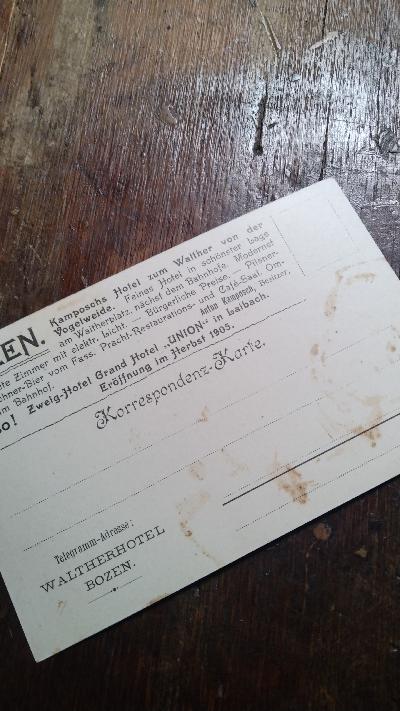 ZEN.
Kamposchs Hotel zum Walther von der
Vogelweide. Feines Hotel in schönster Lage
am Waltherplatz, nächst dem Bahnhofe. Modernst
te Zimmer mit elektr. Licht. — Bürgerliche Preise. — Pilsner-
chner-Bier vom Fass. Pracht-Restaurations- und Café-Saal. Om-
m Bahnhof. Anton Kamposch, Besitzer.
so! Zweig-Hotel Grand Hotel „UNION" in Laibach.
Eröffnung im Herbst 1905.
Korrespondenz-Karte.
Telegramm-Adresse:
WALTHERHOTEL
BOZEN.